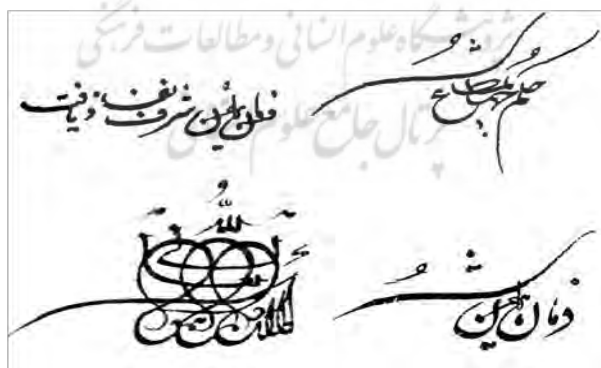 پژوهشگاه علوم انسانی و مطالعات فرهنگی
پرتال جامع علوم انسانی
حکم جهانمطاع شد
فرمان همایون شرف نفاذ یافت
فرمان همایون شد
لله